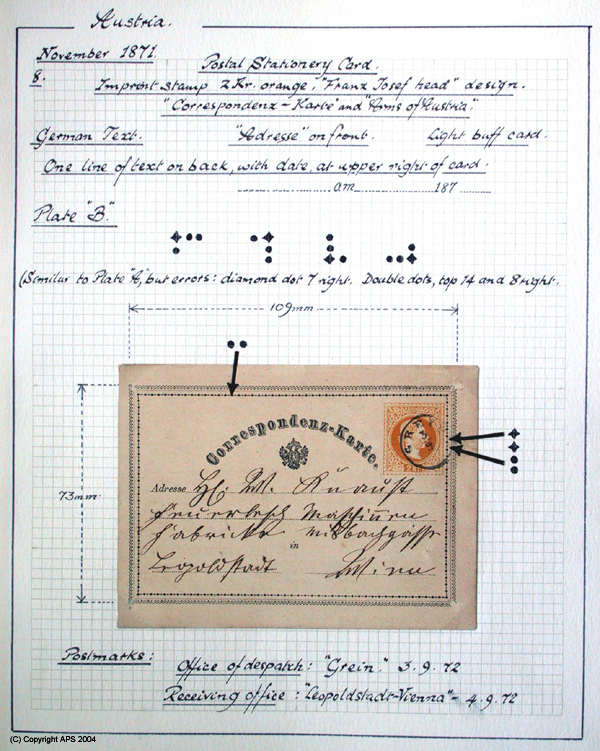 Austria.
November 1871.
Postal Stationery Card.
8.
Imprint stamp 2 Kr. orange, "Franz Josef head" design.
"Correspondenz-Karte" and "Arms of Austria."
German Text. "Adresse" on front. Light buff card.
One line of text on back, with date, at upper right of card.
am 187
Plate "B."
(Similar to Plate "A", but errors: diamond dot 7 right. Double dots, top 14 and 8 right.
109mm
73mm
Correspondenz-Karte.
GREIN
Adresse Hr. W. Knaust
Feuerlösch Maschinen
Fabricke Misbachgasse
in
Leopoldstadt Wien
Postmarks:
Office of despatch: "Grein." 3.9.72
Receiving office: "Leopoldstadt-Vienna" - 4.9.72
(C) Copyright APS 2004